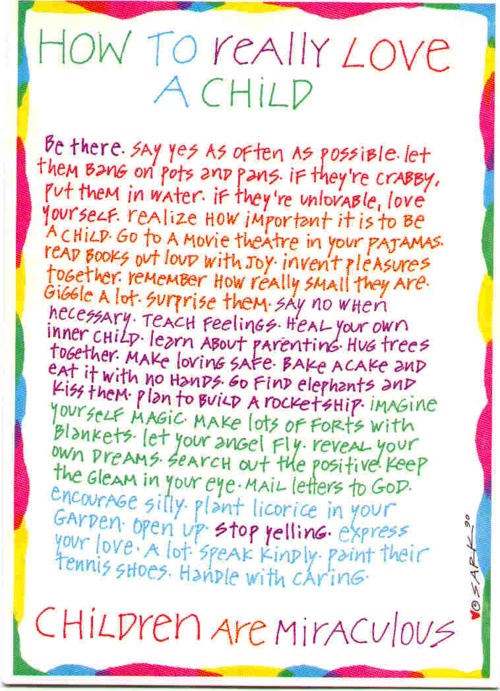 How to really love
a child
Be there. Say yes as often as possible. let
them bang on pots and pans. if they're crabby,
put them in water. if they're unlovable, love
yourself. realize how important it is to be
a child. Go to a movie theatre in your pajamas.
read books out loud with joy. invent pleasures
together. remember how really small they are.
Giggle a lot. Surprise them. Say no when
necessary. Teach feelings. Heal your own
inner child. learn about parenting. Hug trees
together. Make loving safe. Bake a cake and
eat it with no hands. Go find elephants and
kiss them. plan to build a rocketship. imagine
yourself magic. Make lots of forts with
blankets. let your angel fly. reveal your
own dreams. Search out the positive. Keep
the gleam in your eye. Mail letters to God.
encourage silly. plant licorice in your
garden. open up. Stop yelling. express
your love. A lot. Speak kindly. paint their
tennis shoes. Handle with caring.
Children are miraculous
© SARK 90